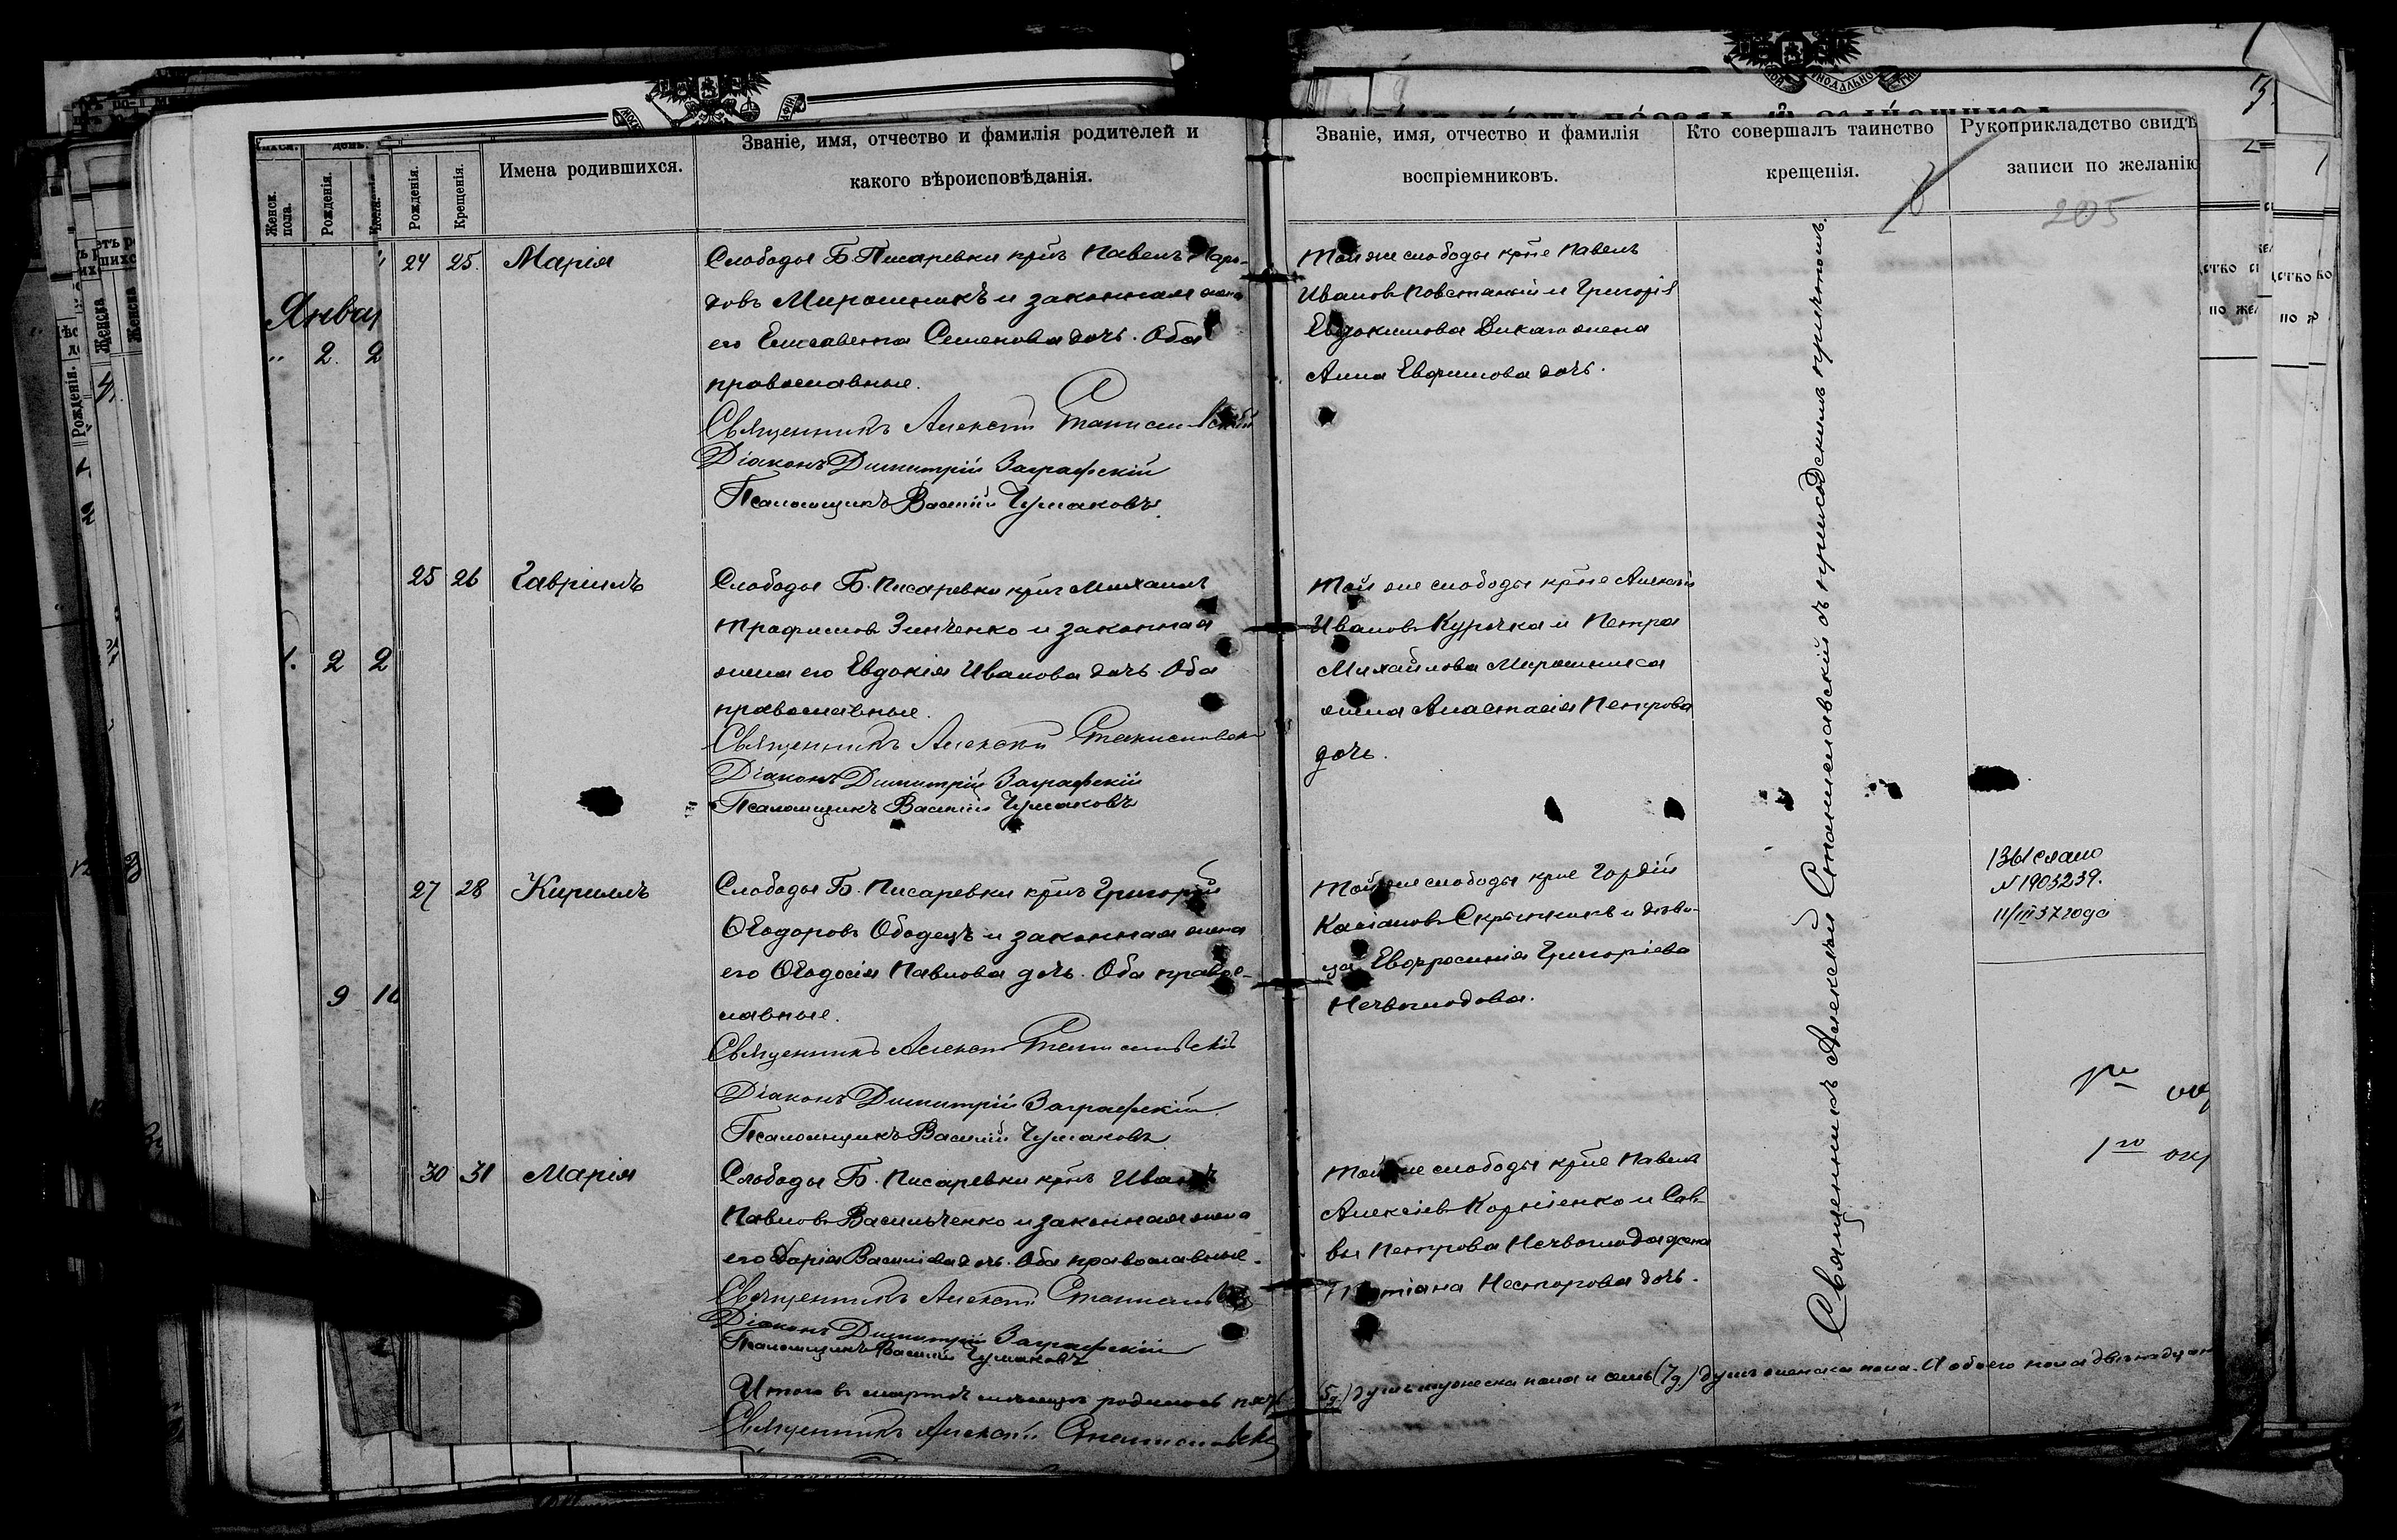 Женск. пола.
Рожденія.
Рожденія.
Крещенія.
Имена родившихся.
Званіе, имя, отчество и фамилія родителей и
какого вѣроисповѣданія.
Званіе, имя, отчество и фамилія
воспріемниковъ.
Кто совершалъ таинство
крещенія.
Рукоприкладство свидѣ
записи по желанію
205
Январ
2. 2
2 2
9 10
24 25. Марія
Слободы Б. Писаревки крнъ Павелъ
довъ Мирошникъ и законная жена
его Елисавета Семенова дочь. Оба
православные.
Священникъ Алексій Станиславскій
Діаконъ Димитрій Заграфскій
Псаломщикъ Василій Чумаковъ.
Той же слободы крне Павелъ
Ивановъ Повстаный и Григорія
Евдокимова Дикаго жена
Анна Евфимова дочь.
25 26 Гавріилъ
Слободы Б. Писаревки крнъ Михаилъ
Трофимовъ Зинченко и законная
жена его Евдокія Иванова дочь. Оба
православные.
Священникъ Алексій Станиславскій
Діаконъ Димитрій Заграфскій
Псаломщикъ Василій Чумаковъ
Той же слободы крне Алексѣй
Ивановъ Курочка и Петра
Михайлова Мирошника
жена Анастасія Петрова
дочь.
27 28 Кириллъ
Слободы Б. Писаревки крнъ Григорій
Ѳеодоровъ Ободецъ и законная жена
его Ѳеодосія Павлова дочь. Оба правос-
лавные.
Священникъ Алексій Станиславскій
Діаконъ Димитрій Заграфскій
Псаломщикъ Василій Чумаковъ
Той же слободы крне Гордій
Касіановъ Скрынникъ и дѣви-
ца Евфросинія Григоріева
Нечволодова.
N 1903239.
11/III 37 года
30 31 Марія
Слободы Б. Писаревки крнъ Иванъ
Павловъ Васильченко и законная жена
его Дарія Василіева дочь. Оба православные.
Священникъ Алексій Станиславскій
Діаконъ Димитрій Заграфскій
Псаломщикъ Василій Чумаковъ
Той же слободы крне Павелъ
Алексіевъ Корніенко и Сав-
вы Петрова Нечволода жена
Татіана Несторова дочь.
Священникъ Алексѣй Станиславскій съ приходскимъ причтомъ.
Итого въ мартѣ мѣсяцѣ родилось пять (5 д.) душъ мужеска пола и семь (7 д.) душъ женска пола. А обоего пола двѣнадцать
Священникъ Алексій Станиславскій